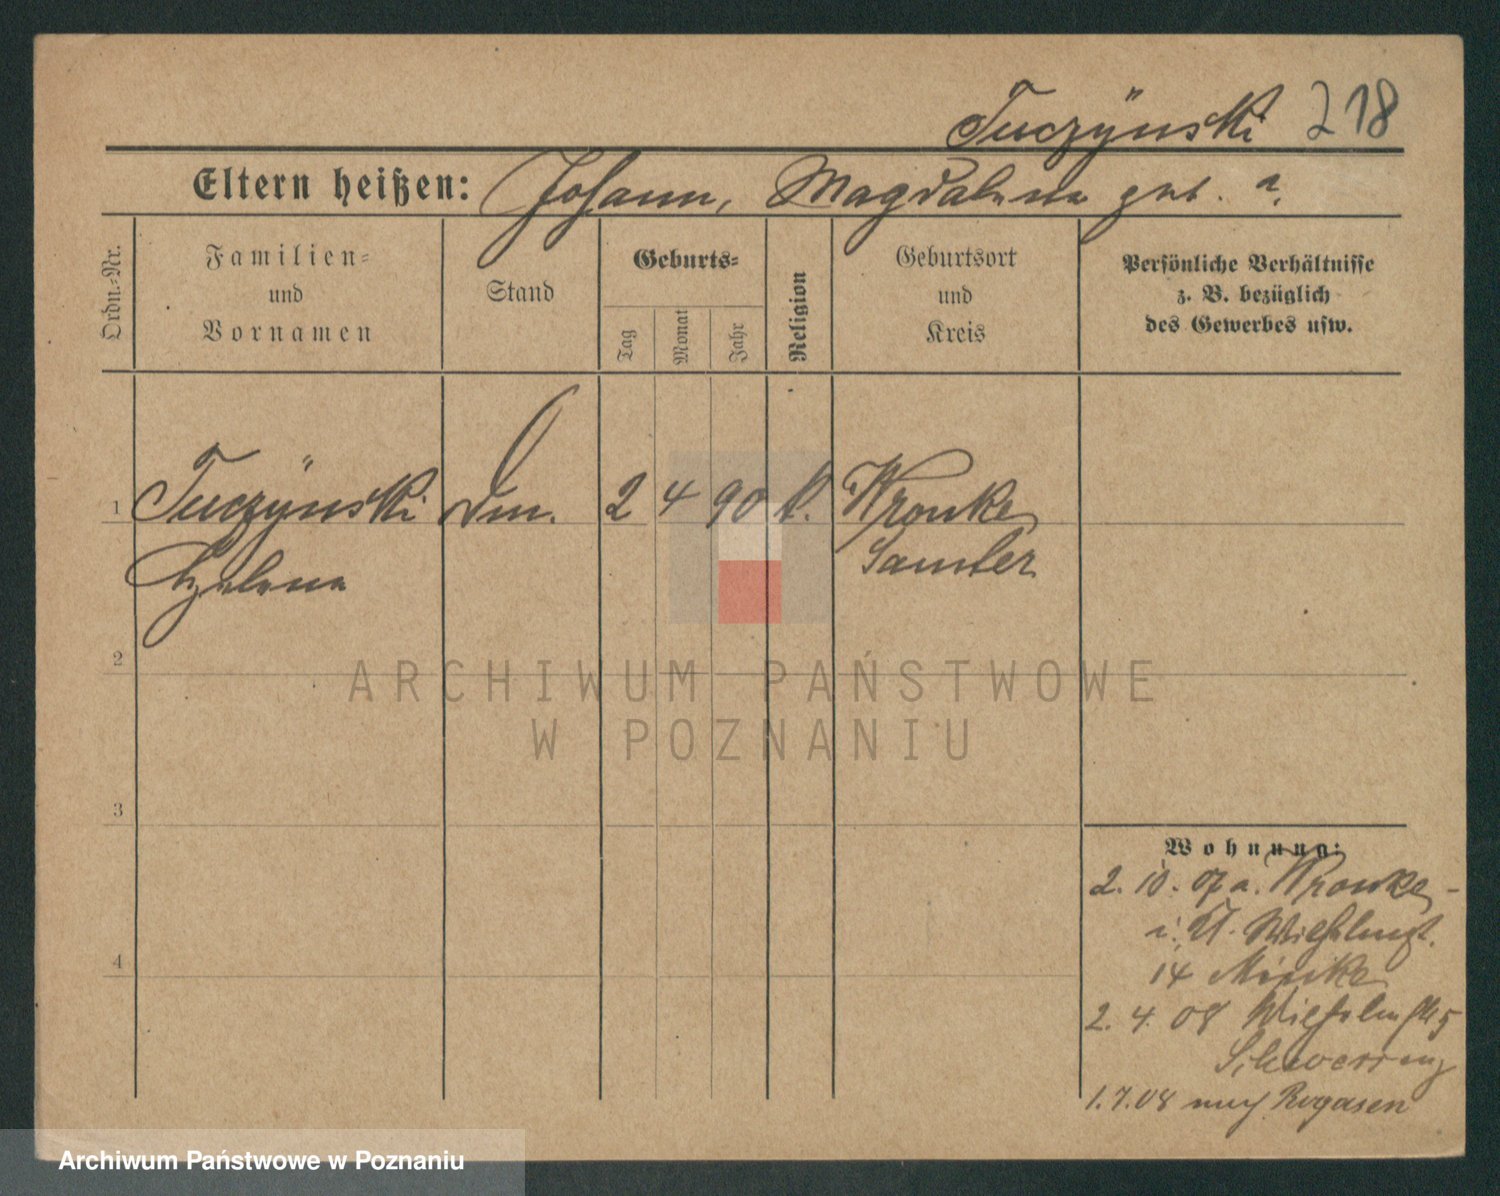 Tuczÿnski 218
Eltern heißen: Johann, Magdalena geb. ?
Ordn.-Nr.
Familien-
und
Vornamen
Stand
Geburts-
Tag
Monat
Jahr
Religion
Geburtsort
und
Kreis
Persönliche Verhältnisse
z. B. bezüglich
des Gewerbes usw.
1 Tuczÿnski 2 4 90 k. Wronke
Helene Samter
2
3
4
Wohnung:
2. 10. 07 a. Wronke
14
2. 4. 08
1.7.08 nach Rogasen
ARCHIWUM PAŃSTWOWE
W POZNANIU
Archiwum Państwowe w Poznaniu